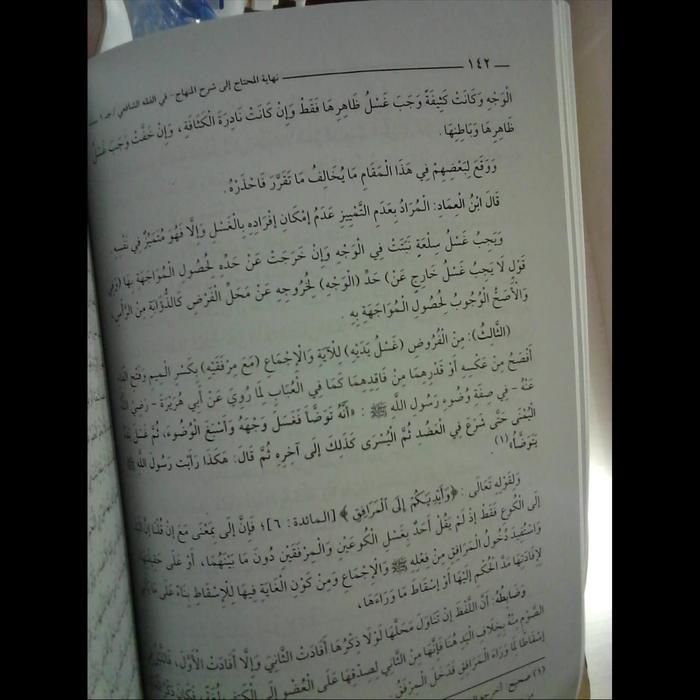 ١٤٢ ــــ نهاية المحتاج إلى شرح المنهاج - في الفقه الشافعي / جـ ١
الْوَجْهِ وَكَانَتْ كَثِيفَةً وَجَبَ غَسْلُ ظَاهِرِهَا فَقَطْ وَإِنْ كَانَتْ نَادِرَةَ الْكَثَافَةِ، وَإِنْ خَفَّتْ وَجَبَ غَسْلُ
ظَاهِرِهَا وَبَاطِنِهَا.
وَوَقَعَ لِبَعْضِهِمْ فِي هَذَا الْمَقَامِ مَا يُخَالِفُ مَا تَقَرَّرَ فَاحْذَرْهُ.
قَالَ ابْنُ الْعِمَادِ: الْمُرَادُ بِعَدَمِ التَّمْيِيزِ عَدَمُ إمْكَانِ إفْرَادِهِ بِالْغَسْلِ وَإِلَّا فَهُوَ مُتَمَيِّزٌ فِي نَفْسِهِ.
وَيَجِبُ غَسْلُ سِلْعَةٍ نَبَتَتْ فِي الْوَجْهِ وَإِنْ خَرَجَتْ عَنْ حَدِّهِ لِحُصُولِ الْمُوَاجَهَةِ بِهَا (وَفِي
قَوْلٍ لَا يَجِبُ غَسْلُ خَارِجٍ عَنْ) حَدِّ (الْوَجْهِ) لِخُرُوجِهِ عَنْ مَحَلِّ الْفَرْضِ كَالذُّؤَابَةِ مِنْ الرَّأْسِ،
وَالْأَصَحُّ الْوُجُوبُ لِحُصُولِ الْمُوَاجَهَةِ بِهِ.
(الثَّالِثُ): مِنْ الْفُرُوضِ (غَسْلُ يَدَيْهِ) لِلْآيَةِ وَالْإِجْمَاعِ (مَعَ مِرْفَقَيْهِ) بِكَسْرِ الْمِيمِ وَفَتْحِ الْفَاءِ
أَفْصَحُ مِنْ عَكْسِهِ أَوْ قَدْرِهِمَا مِنْ فَاقِدِهِمَا كَمَا فِي الْعُبَابِ لِمَا رُوِيَ عَنْ أَبِي هُرَيْرَةَ - رَضِيَ اللَّهُ
عَنْهُ - فِي صِفَةِ وُضُوءِ رَسُولِ اللَّهِ ﷺ: «أَنَّهُ تَوَضَّأَ فَغَسَلَ وَجْهَهُ وَأَسْبَغَ الْوُضُوءَ، ثُمَّ غَسَلَ يَدَهُ
الْيُمْنَى حَتَّى شَرَعَ فِي الْعَضُدِ ثُمَّ الْيُسْرَى كَذَلِكَ إلَى آخِرِهِ ثُمَّ قَالَ: هَكَذَا رَأَيْت رَسُولَ اللَّهِ ﷺ
يَتَوَضَّأُ»(١).
وَلِقَوْلِهِ تَعَالَى: ﴿وَأَيْدِيَكُمْ إِلَى ٱلْمَرَافِقِ﴾ [المائدة: ٦]؛ فَإِنَّ إلَى بِمَعْنَى مَعَ إنْ قُلْنَا إنَّ الْيَدَ
إلَى الْكُوعِ فَقَطْ إذْ لَمْ يَقُلْ أَحَدٌ بِغَسْلِ الْكُوعَيْنِ وَالْمِرْفَقَيْنِ دُونَ مَا بَيْنَهُمَا، أَوْ عَلَى حَقِيقَتِهَا
وَاسْتُفِيدَ دُخُولُ الْمَرَافِقِ مِنْ فِعْلِهِ ﷺ وَالْإِجْمَاعِ وَمِنْ كَوْنِ الْغَايَةِ فِيهَا لِلْإِسْقَاطِ بِنَاءً عَلَى
لِإِفَادَتِهَا مَدَّ الْحُكْمِ إلَيْهَا أَوْ إسْقَاطَ مَا وَرَاءَهَا،
وَضَابِطُهُ: أَنَّ اللَّفْظَ إنْ تَنَاوَلَ مَحَلَّهَا لَوْلَا ذِكْرُهَا أَفَادَتْ الثَّانِيَ وَإِلَّا أَفَادَتْ الْأَوَّلَ،
الصَّوْمِ مِنْهُ بِخِلَافِ الْيَدِ هُنَا فَإِنَّهَا مِنْ الثَّانِي لِصِدْقِهَا عَلَى الْعُضْوِ إلَى الْكَتِفِ
إسْقَاطًا لِمَا وَرَاءَ الْمَرَافِقِ فَدَخَلَ الْمِرْفَقُ.
(١) صحيح: